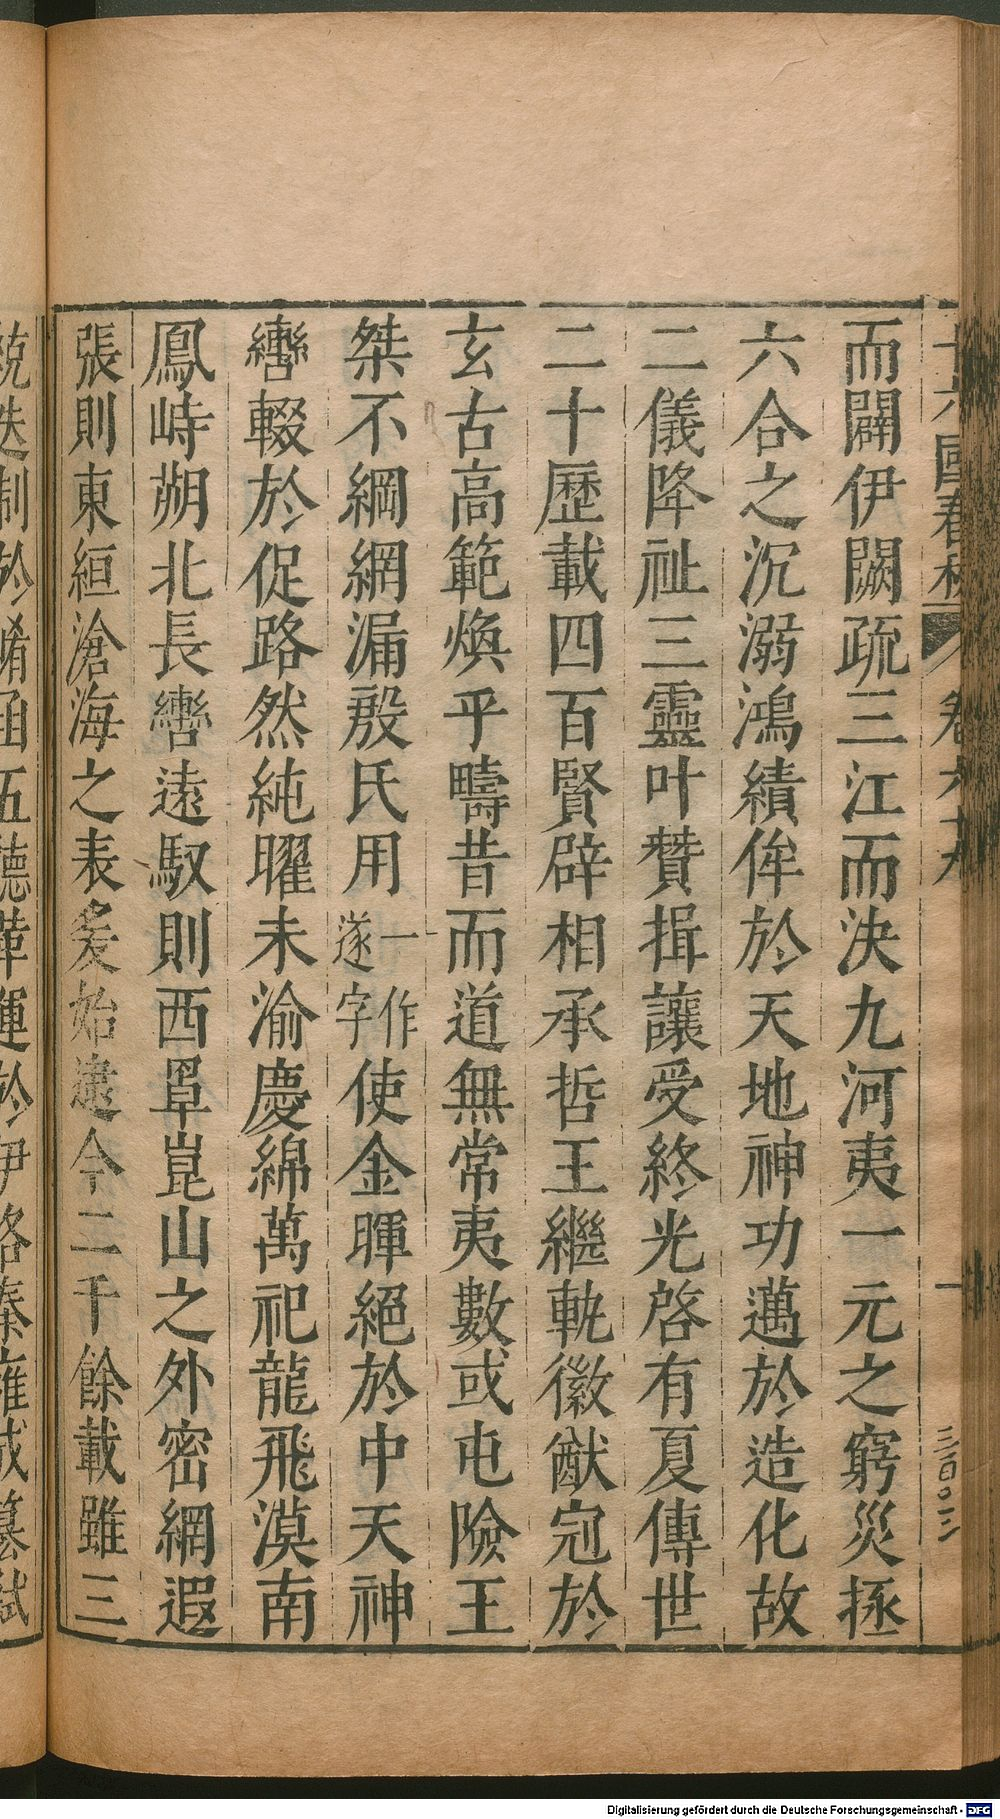 十六國春秋 卷六十九 一
三百〇三
而闢伊闕疏三江而決九河夷一元之窮災拯
六合之沉溺鴻績侔於天地神功邁於造化故
二儀降祉三靈叶贊揖讓受終光啓有夏傳世
二十歷載四百賢辟相承哲王繼軌徽猷冠於
玄古高範煥乎疇昔而道無常夷數或屯險王
桀不綱網漏殷氏用一作遂字使金暉絕於中天神
轡輟於促路然純曜未渝慶綿萬祀龍飛漠南
鳳峙朔北長轡遠馭則西罩崑山之外密網遐
張則東絙滄海之表爰始逮今二千餘載雖三
統迭制於崤函五德革運於伊洛秦雍成篡弒
Digitalisierung gefördert durch die Deutsche Forschungsgemeinschaft - DFG